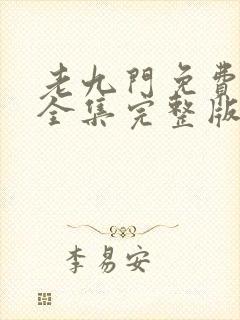 老九門免費
全集完整版
李易安